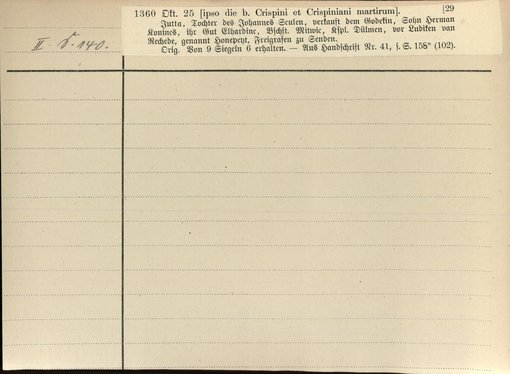 1360 Okt. 25 [ipso die b. Crispini et Crispiniani martirum]. [29
Jutta, Tochter des Johannes Sculen, verkauft dem Godekin, Sohn Herman
Konincs, ihr Gut Elhardinc, Bschft. Mitwic, Kspl. Dülmen, vor Ludiken van
Rechede, genannt Honepeyt, Freigrafen zu Senden.
Orig. Von 9 Siegeln 6 erhalten. — Aus Handschrift Nr. 41, s. S. 158* (102).
II. 5. 140.